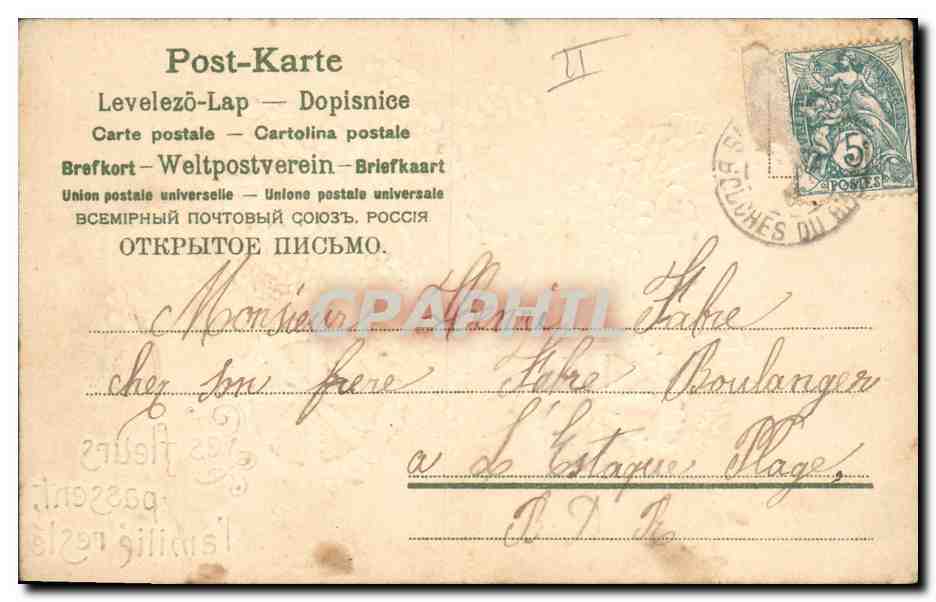 Post-Karte
Levelezö-Lap — Dopisnice
Carte postale — Cartolina postale
Brefkort — Weltpostverein — Briefkaart
Union postale universelle — Unione postale universale
ВСЕМІРНЫЙ ПОЧТОВЫЙ СОЮЗЪ. РОССІЯ
ОТКРЫТОЕ ПИСЬМО.
II
5
POSTES
BOUCHES DU
CPAPHIL
Monsieur Henri Fabre
chez son frere Fabre Boulanger
a L'Estaque Plage,
B D R
Les fleurs
passent,
l'amitié reste